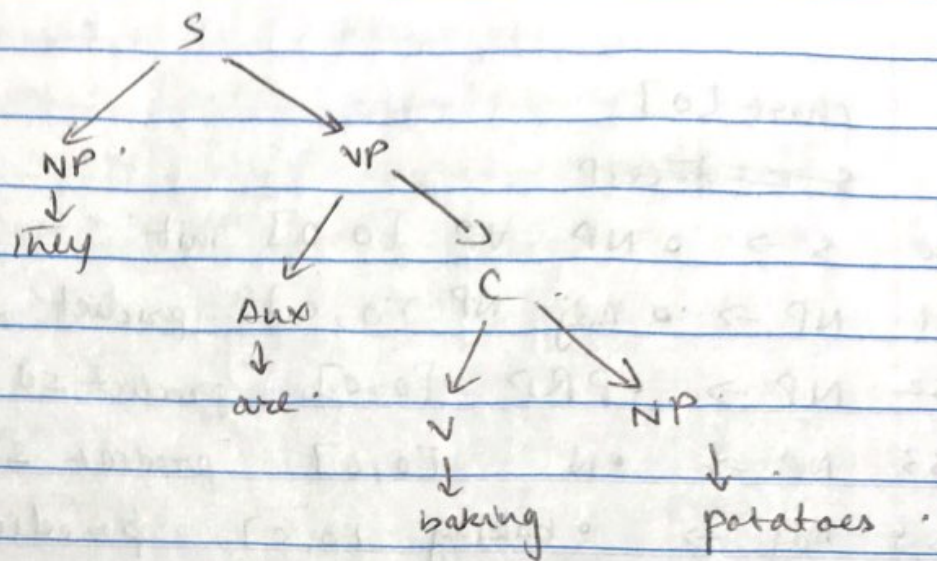 S
NP VP
They
Aux C
are
V NP
baking potatoes